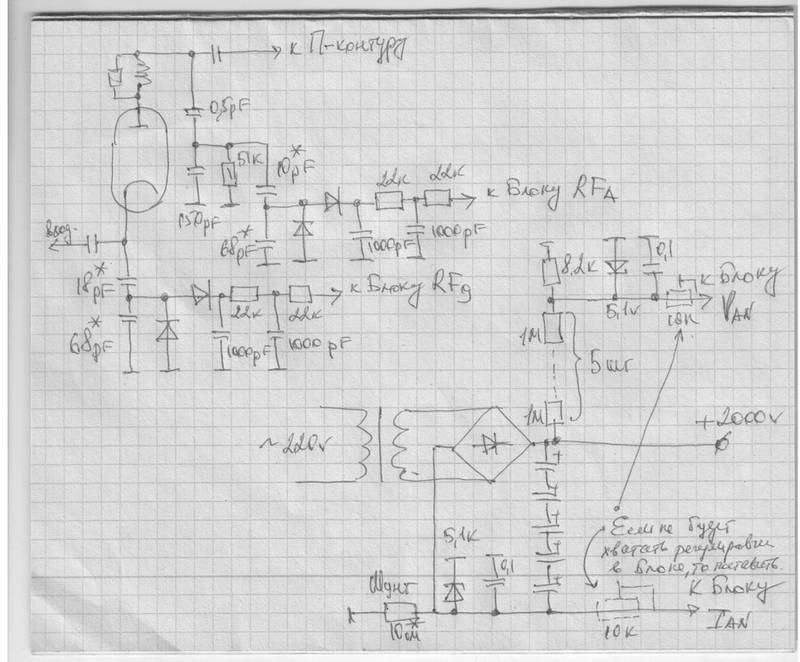 к П-контуру
0,5pF
51к
10*pF
150pF
22к
22к
к Блоку RFA
68*pF
1000pF
1000pF
вход.
18*pF
68*pF
22к
22к
к Блоку RFg
1000pF
1000pF
8,2к
5,1v
0,1
к Блоку
10К
VAN
1М
5 шт
1М
+2000v
~220v
Если не будет
хватать регулировки
в Блоке, то поставить.
5,1к
0,1
Шунт
10ом*
10к
К Блоку
IAN